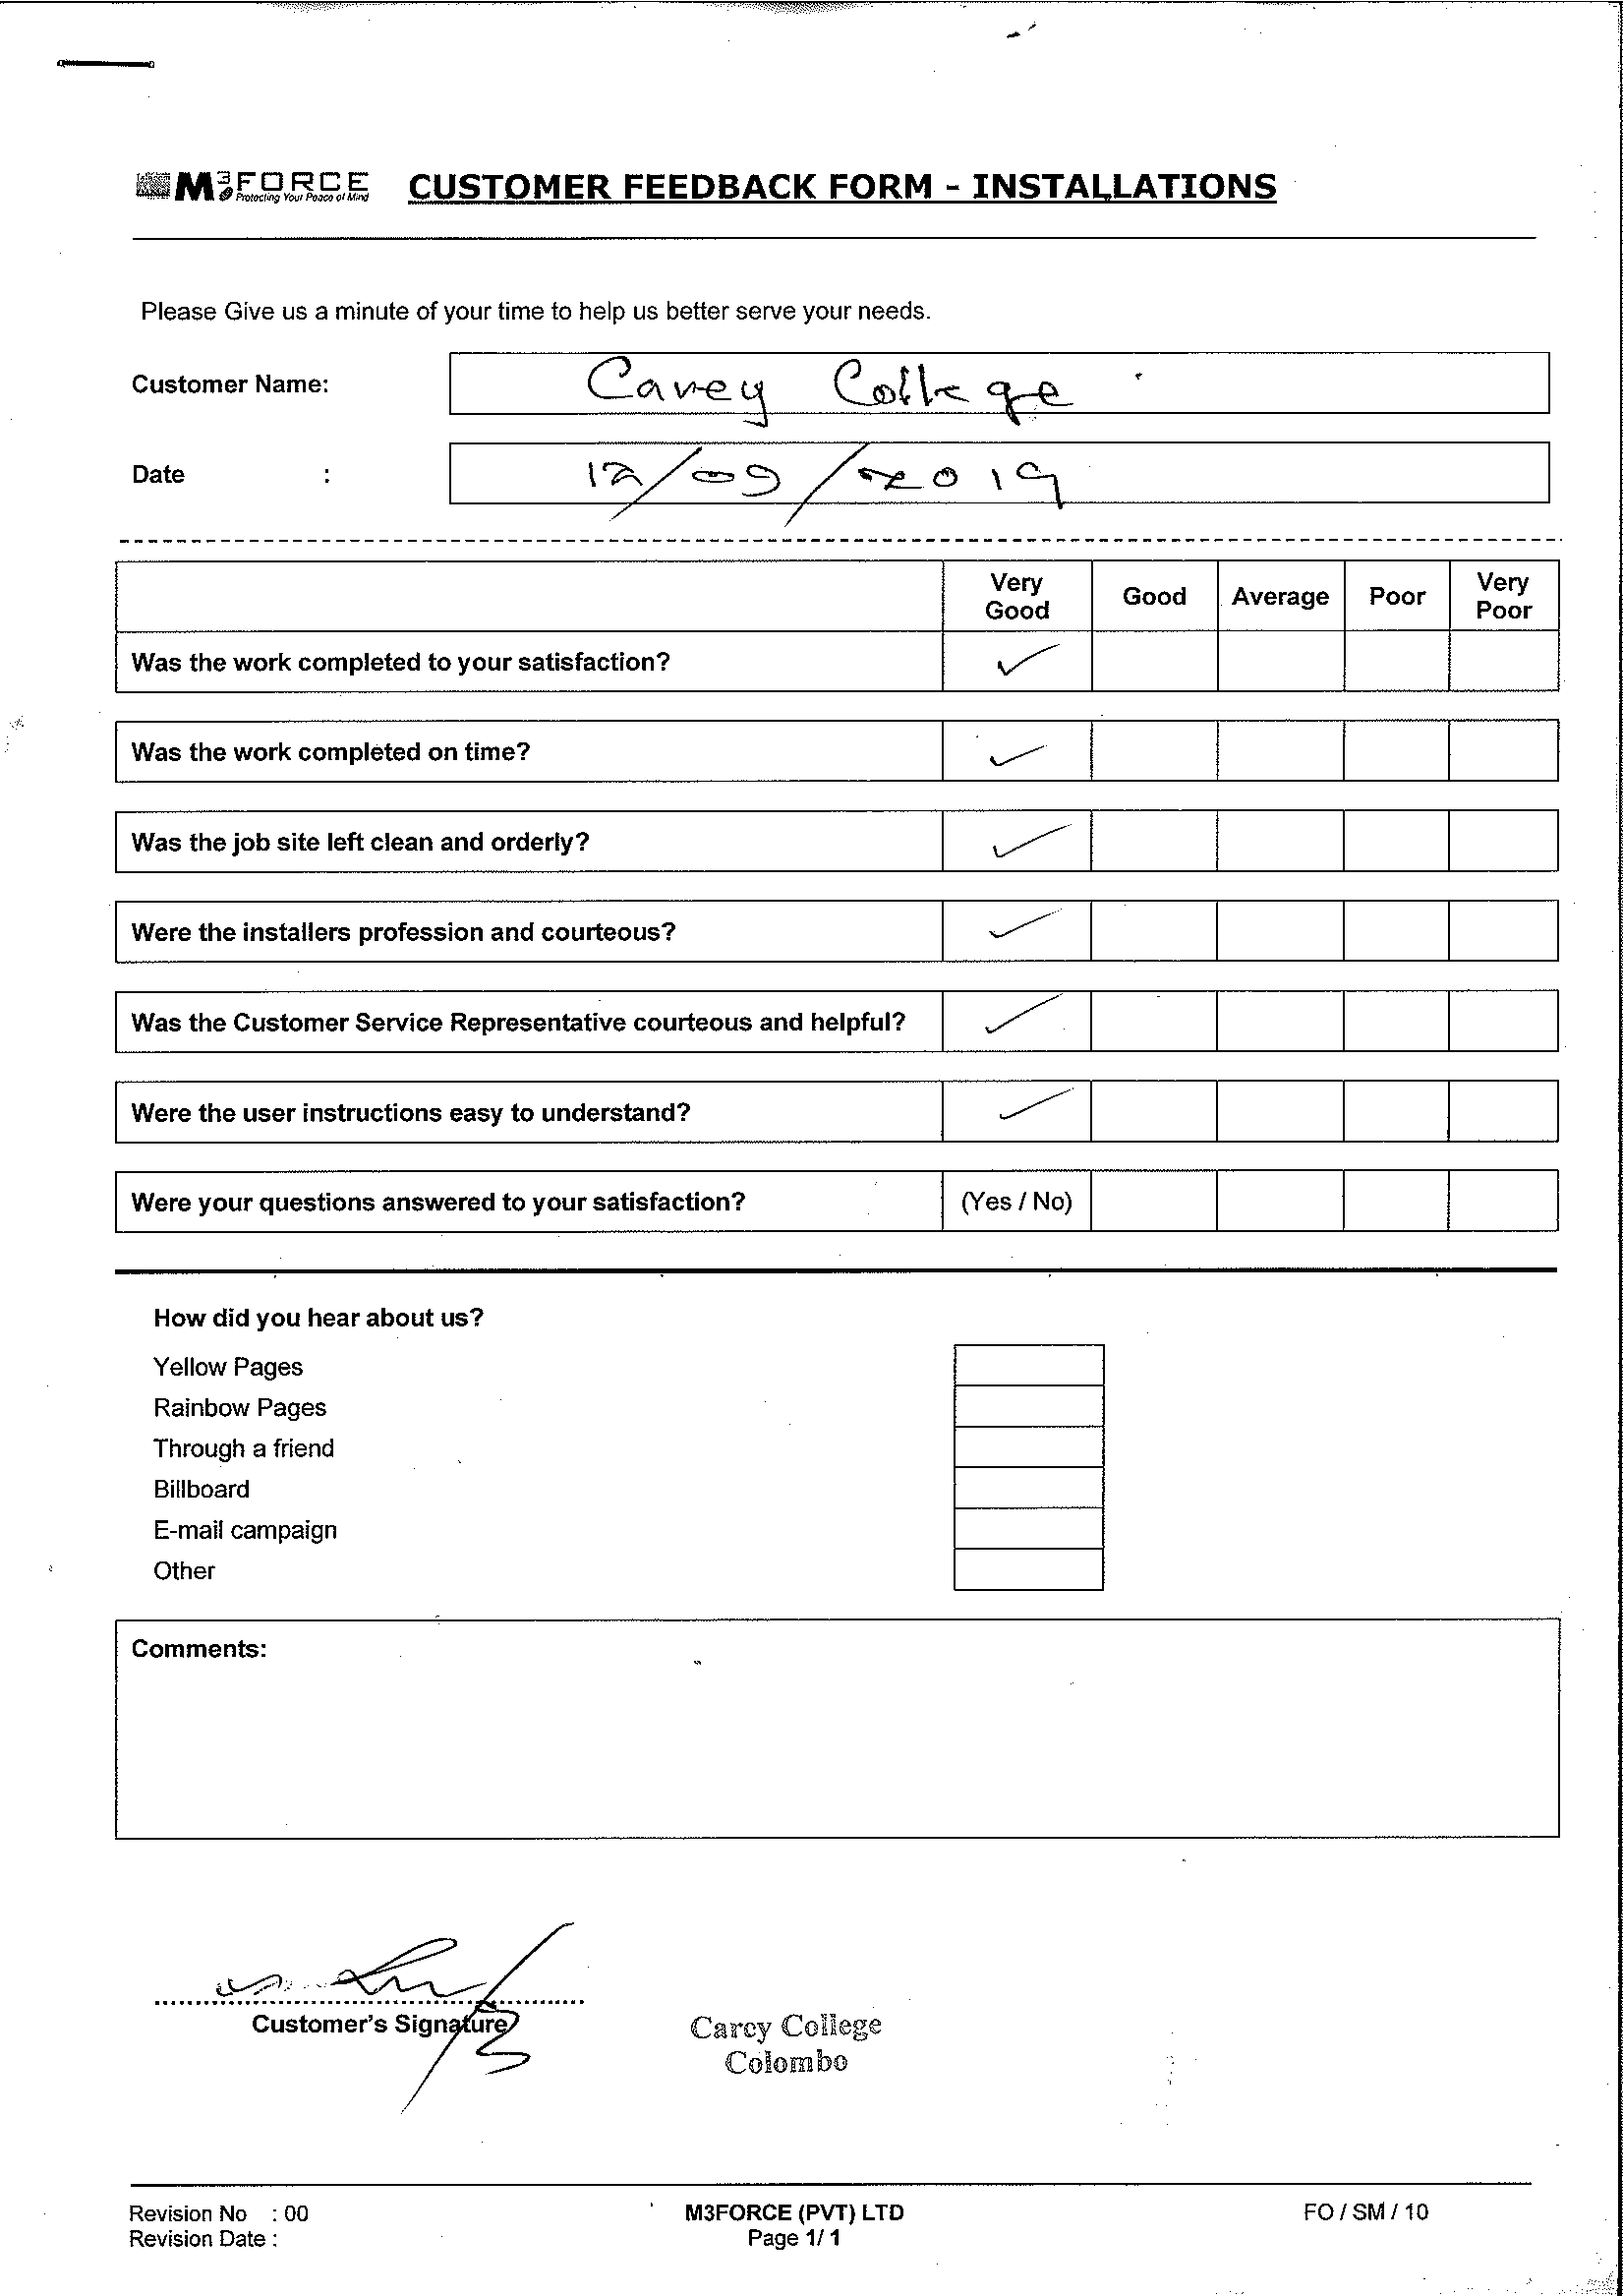 M3FORCE
Protecting Your Peace of Mind
CUSTOMER FEEDBACK FORM - INSTALLATIONS
Please Give us a minute of your time to help us better serve your needs.
Customer Name: Carey College
Date : 12/09/2019
Very Good Good Average Poor Very Poor
Was the work completed to your satisfaction? ✓
Was the work completed on time? ✓
Was the job site left clean and orderly? ✓
Were the installers profession and courteous? ✓
Was the Customer Service Representative courteous and helpful? ✓
Were the user instructions easy to understand? ✓
Were your questions answered to your satisfaction? (Yes / No)
How did you hear about us?
Yellow Pages
Rainbow Pages
Through a friend
Billboard
E-mail campaign
Other
Comments:
Customer's Signature
Carey College
Colombo
Revision No : 00
Revision Date :
M3FORCE (PVT) LTD
Page 1/ 1
FO / SM / 10